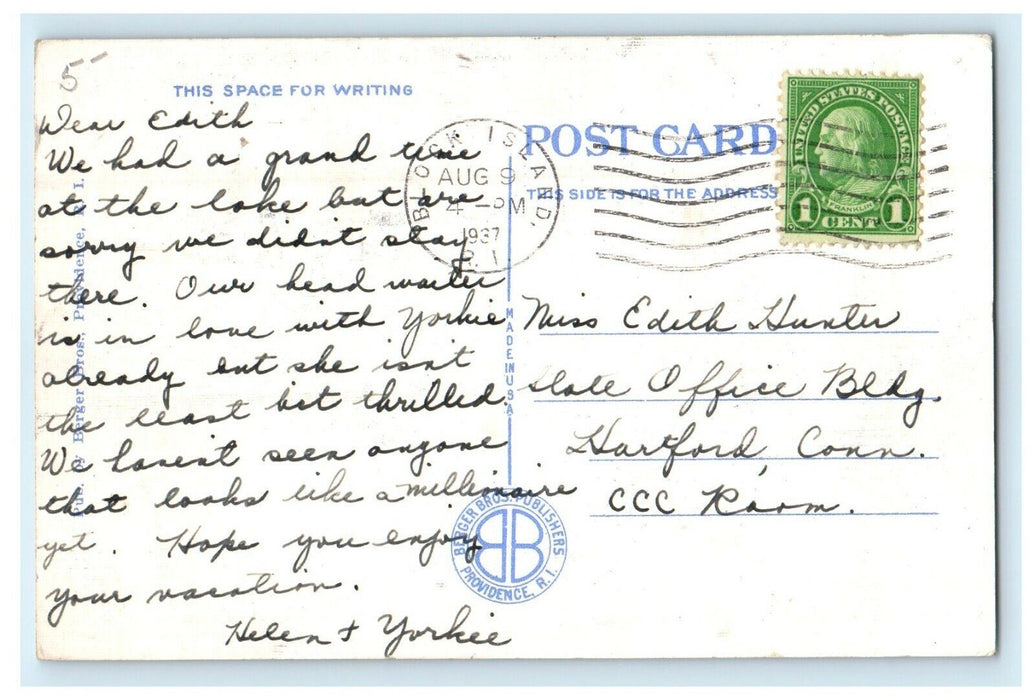 5-
THIS SPACE FOR WRITING
Dear Edith
We had a grand time
at the lake but are
sorry we didnt stay
there. Our head waiter
is in love with Yorkie
already but she isn't
the least bit thrilled.
We haven't seen anyone
that looks like a millionaire
yet. Hope you enjoy
your vacation.
Helen & Yorkie
by Berger Bros., Providence, R. I.
BLOCK ISLAND,
AUG 9
4 -PM
1937
R. I.
POST CARD
THIS SIDE IS FOR THE ADDRESS
UNITED STATES POSTAGE
FRANKLIN
1 CENT 1
MADE IN U.S.A.
Miss Edith Hunter
State Office Bldg.
Hartford, Conn.
CCC Room.
BERGER BROS. PUBLISHERS
BB
PROVIDENCE, R. I.